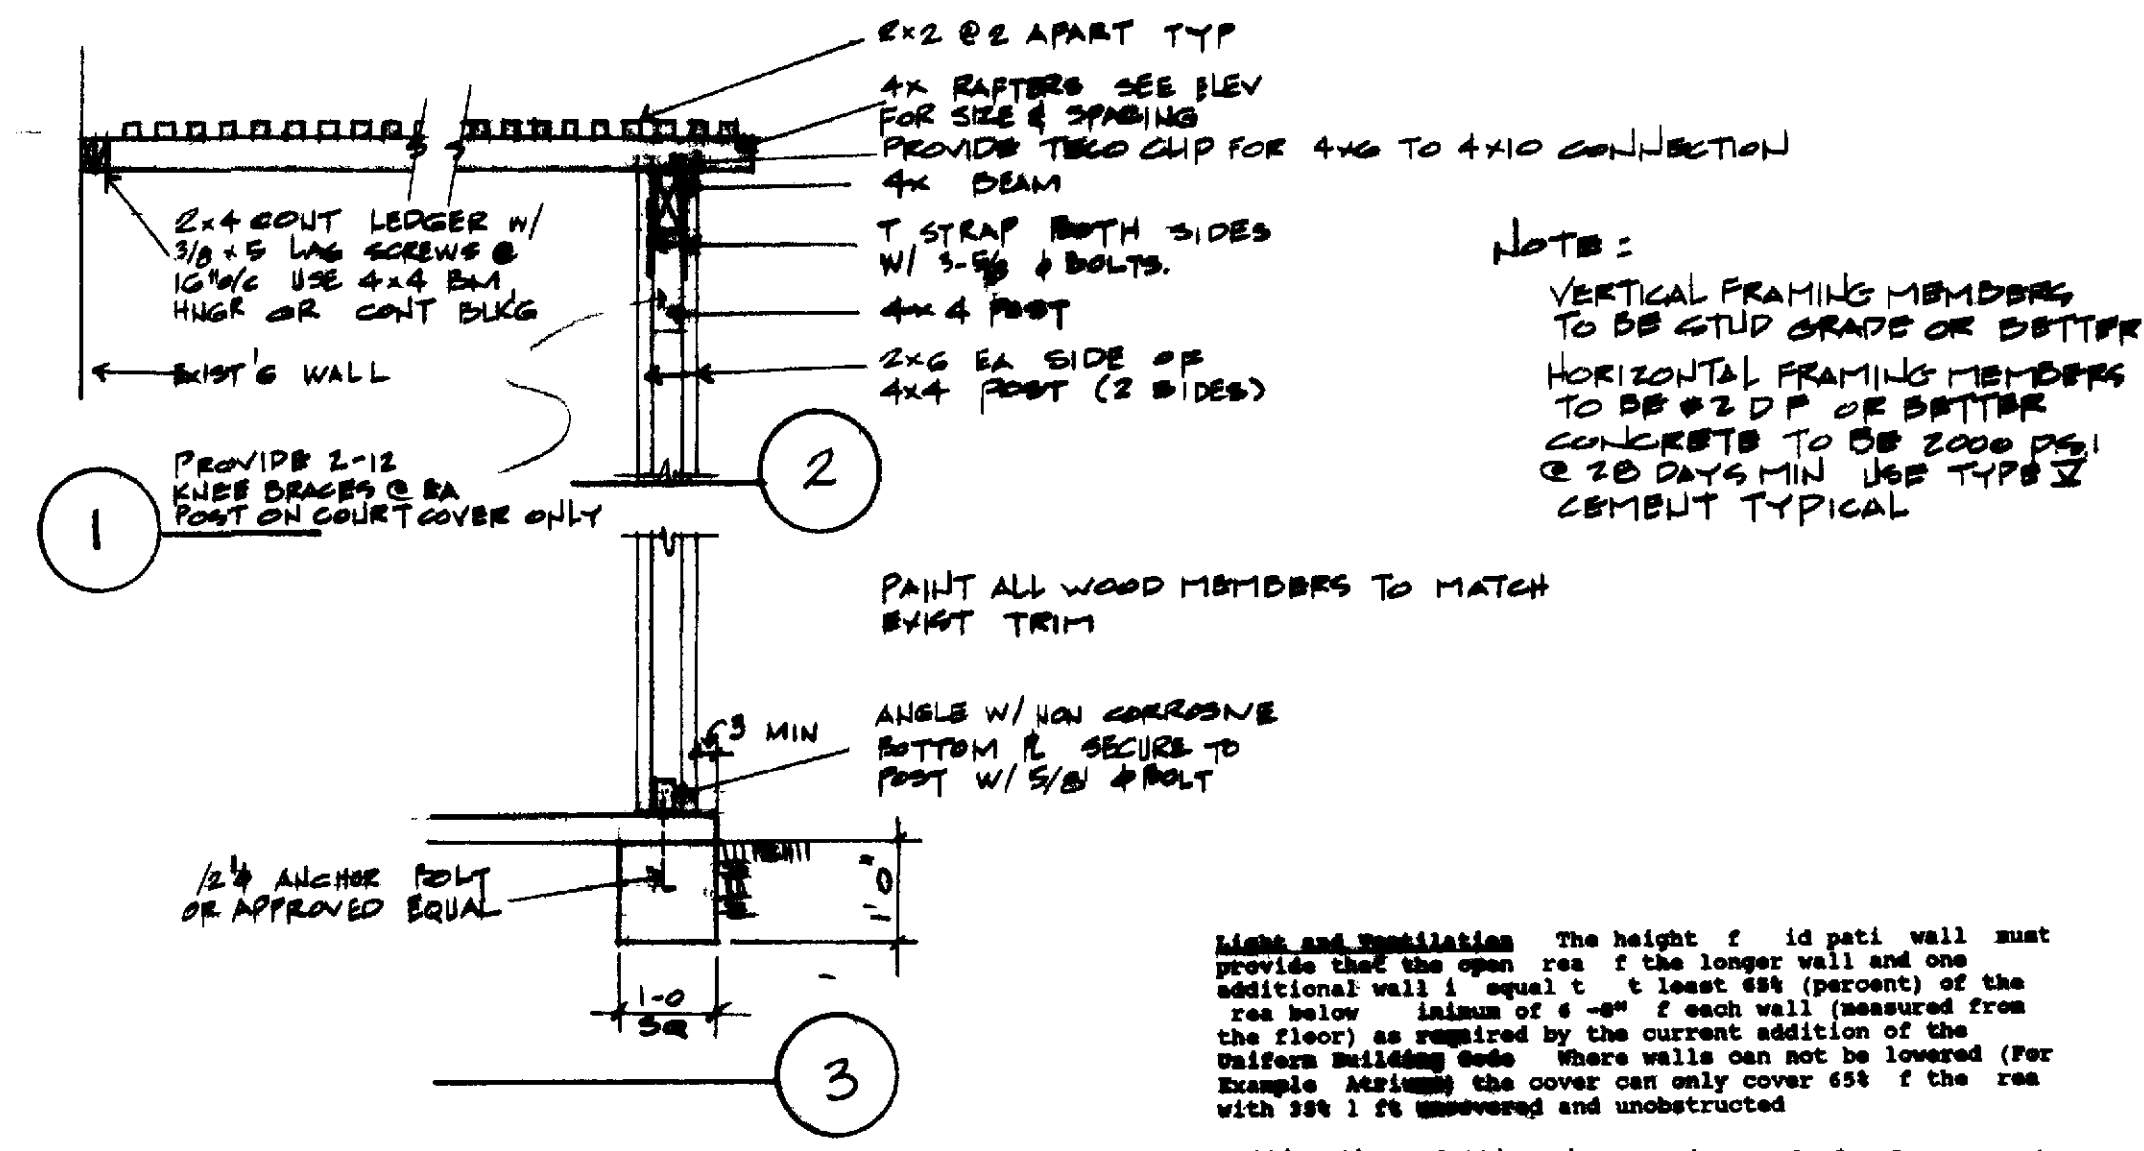 2x2 @ 2 APART TYP
4x RAFTERS SEE ELEV
FOR SIZE & SPACING
PROVIDE TECO CLIP FOR 4x6 TO 4x10 CONNECTION
4x BEAM
T STRAP BOTH SIDES
W/ 3-5/8 φ BOLTS.
4x4 POST
2x6 EA SIDE OF
4x4 POST (2 SIDES)
2x4 CONT LEDGER W/
3/8 x 5 LAG SCREWS @
16" o/c USE 4x4 BM
HNGR OR CONT BLKG
EXIST'G WALL
PROVIDE 2-12
KNEE BRACES @ EA
POST ON COURT COVER ONLY
1
2
NOTE:
VERTICAL FRAMING MEMBERS
TO BE STUD GRADE OR BETTER
HORIZONTAL FRAMING MEMBERS
TO BE #2 D F OR BETTER
CONCRETE TO BE 2000 PSI
@ 28 DAYS MIN USE TYPE V
CEMENT TYPICAL
PAINT ALL WOOD MEMBERS TO MATCH
EXIST TRIM
3 MIN
ANGLE W/ NON CORROSIVE
BOTTOM PL SECURE TO
POST W/ 5/8 φ BOLT
1/2 φ ANCHOR BOLT
OR APPROVED EQUAL
1'-0"
1-0
SQ
3
Light and Ventilation The height f id pati wall must
provide that the open rea f the longer wall and one
additional wall i equal t t least 65% (percent) of the
rea below inimum of 6 -8" f each wall (measured from
the floor) as required by the current addition of the
Uniform Building Code Where walls can not be lowered (For
Example Atriums) the cover can only cover 65% f the rea
with 35% l ft uncovered and unobstructed